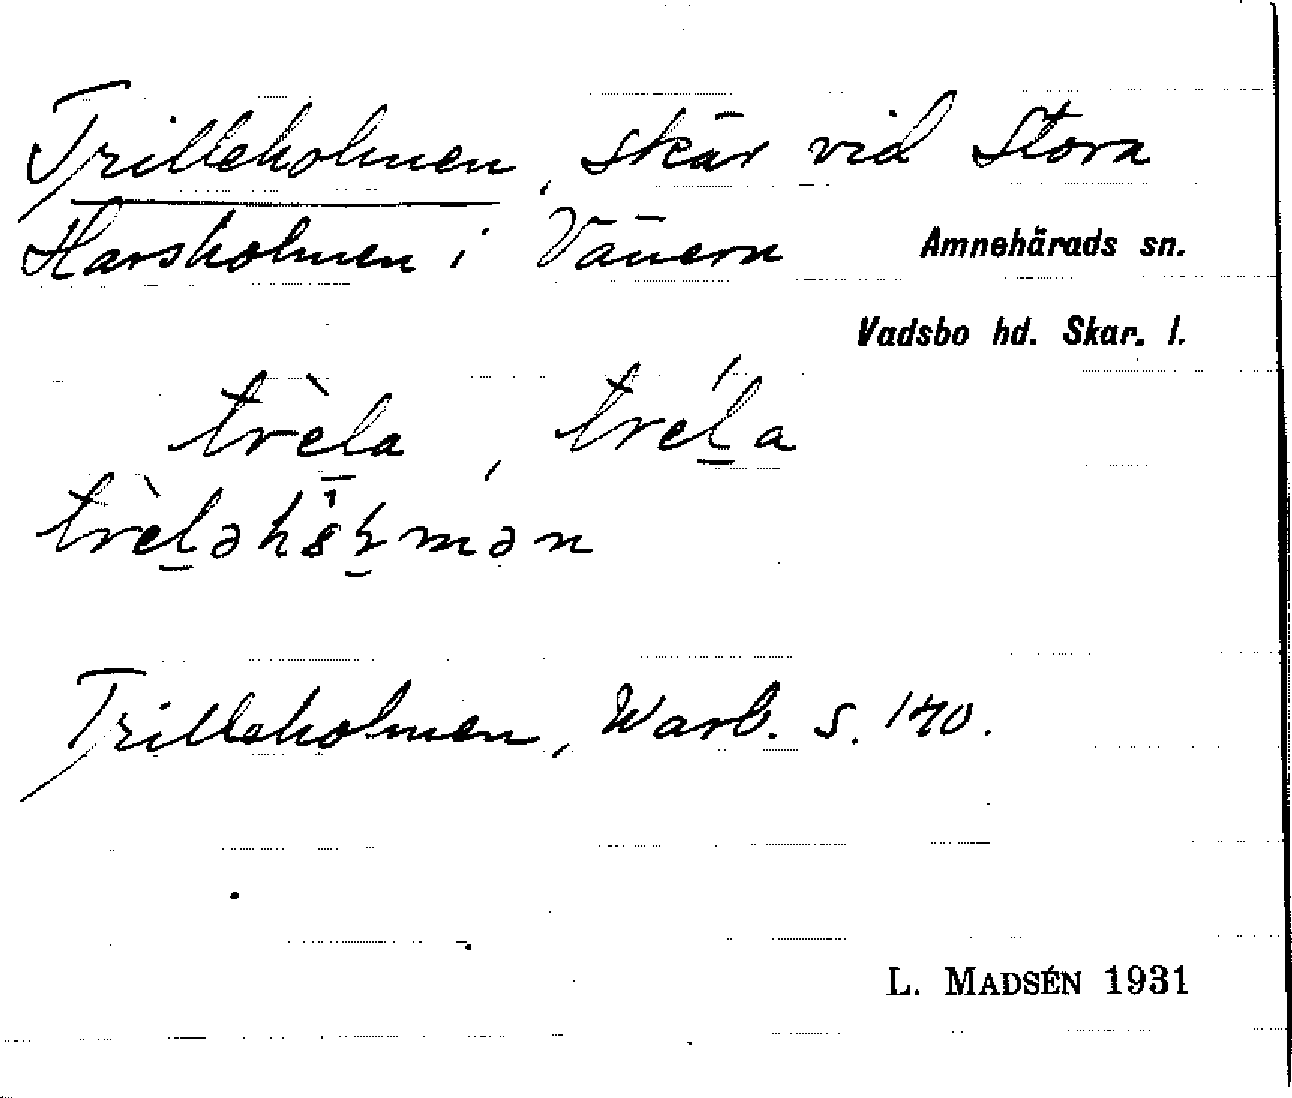 Trilleholmen, skär vid Stora
Harsholmen i Vänern
Amnehärads sn.
Vadsbo hd. Skar. l.
trèl̠a, trél̠a
Trilleholmen, Warb. s. 170.
L. MADSÉN 1931